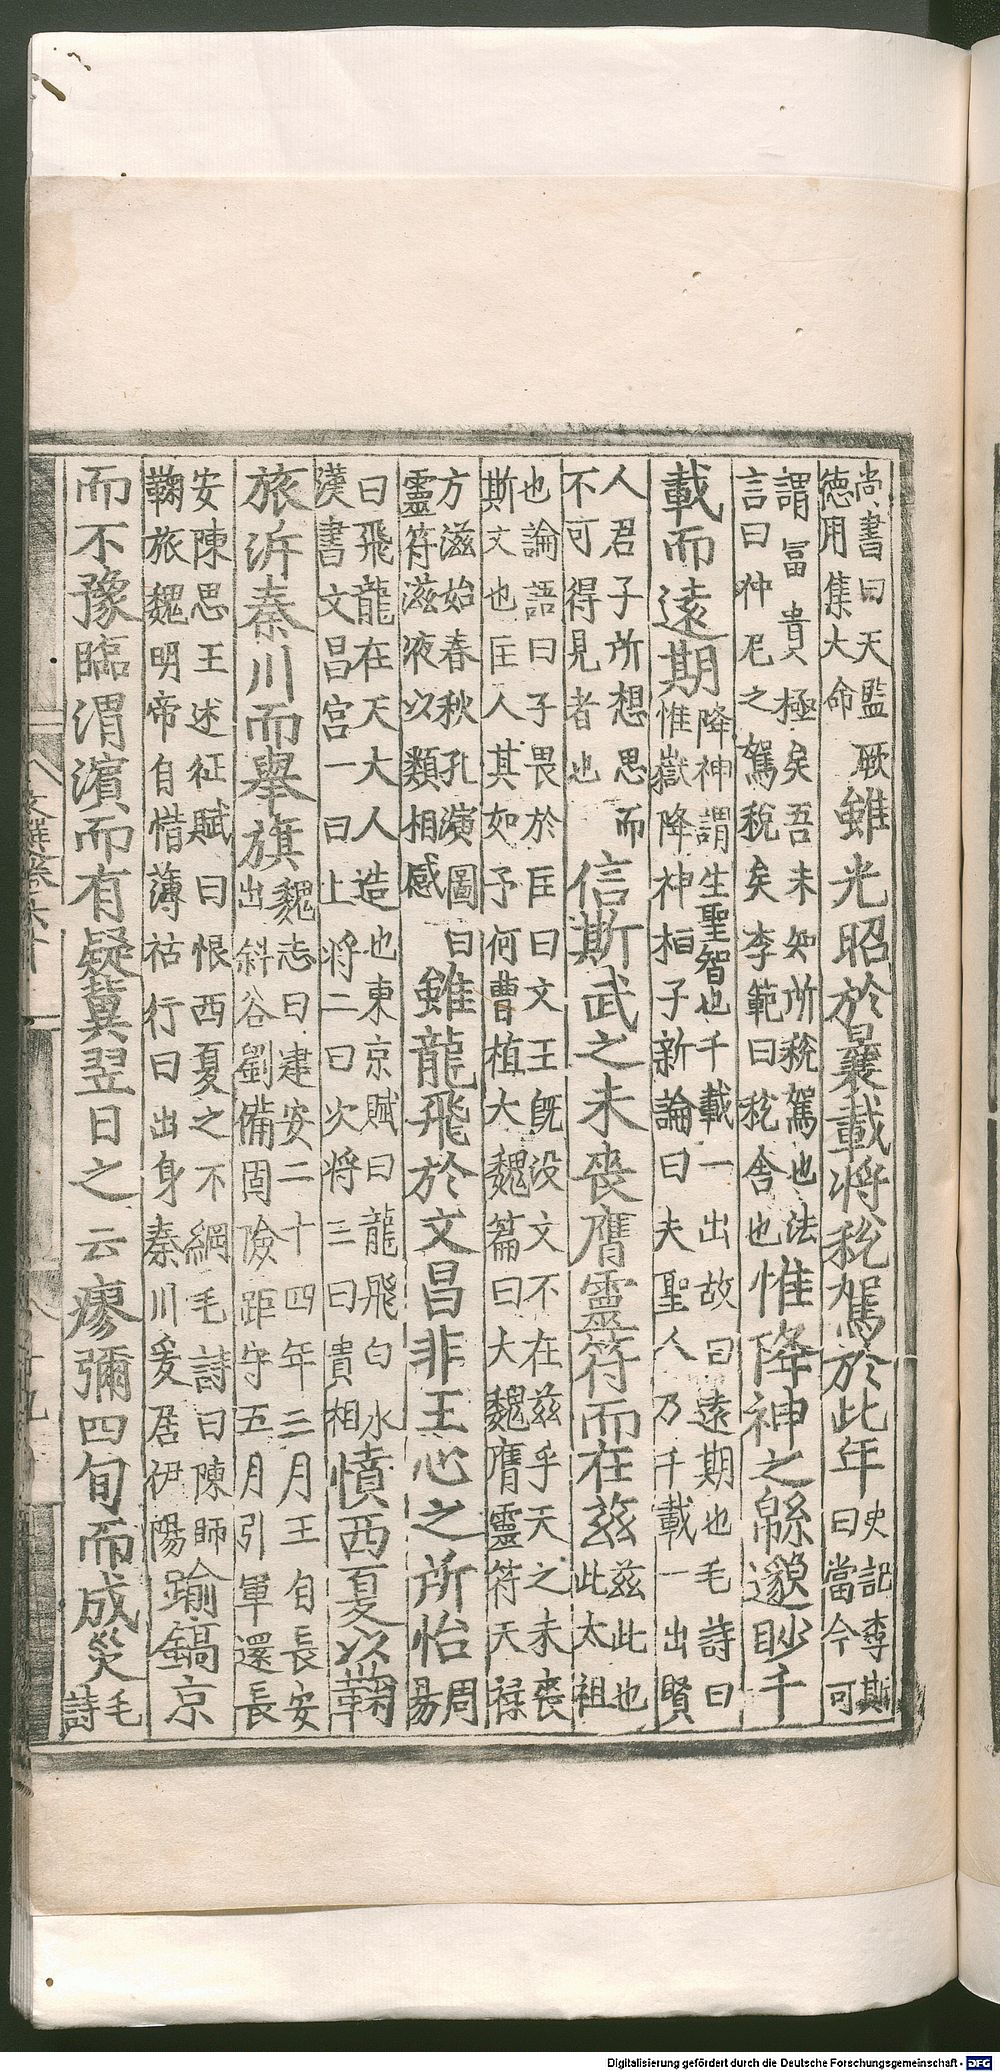 尚書曰天監厥徳用集大命雖光昭於曩載將稅駕於此年史記李斯曰當今可
謂冨貴極矣吾未知所稅駕也法言曰仲尼之駕稅矣李範曰稅舍也惟降神之緜邈眇千
載而遠期降神謂生聖智也千載一出故曰遠期也毛詩曰惟嶽降神桓子新論曰夫聖人乃千載一出賢
人君子所想思而不可得見者也信斯武之未喪膺靈符而在兹兹此也此太祖
也論語曰子畏於匡曰文王既没文不在兹乎天之未喪斯文也匡人其如予何曹植大魏篇曰大魏膺靈符天禄
方滋始春秋孔演圖曰靈符滋液以類相感雖龍飛於文昌非王心之所怡周易
曰飛龍在天大人造也東京賦曰龍飛白水漢書文昌宫一曰上将二曰次将三曰貴相憤西夏以鞠
旅泝秦川而舉旗魏志曰建安二十四年三月王自長安出斜谷劉備固險距守五月引軍還長
安陳思王述征賦曰恨西夏之不綱毛詩曰陳師鞠旅魏明帝自惜薄祜行曰出身秦川爰居伊陽踰鎬京
而不豫臨渭濱而有疑冀翌日之云瘳彌四旬而成災毛詩
文選卷六十
Digitalisierung gefördert durch die Deutsche Forschungsgemeinschaft - DFG